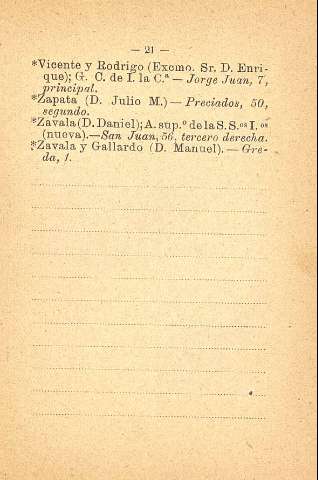 — 21 —
*Vicente y Rodrigo (Excmo. Sr. D. Enri-
que); G. C. de I. la C.ª — Jorge Juan, 7,
principal.
*Zapata (D. Julio M.) — Preciados, 50,
segundo.
*Zavala (D. Daniel); A. sup.º de la S. S.ᵒˢ I.ᵒˢ
(nueva).—San Juan, 56, tercero derecha.
*Zavala y Gallardo (D. Manuel). — Gre-
da, 1.